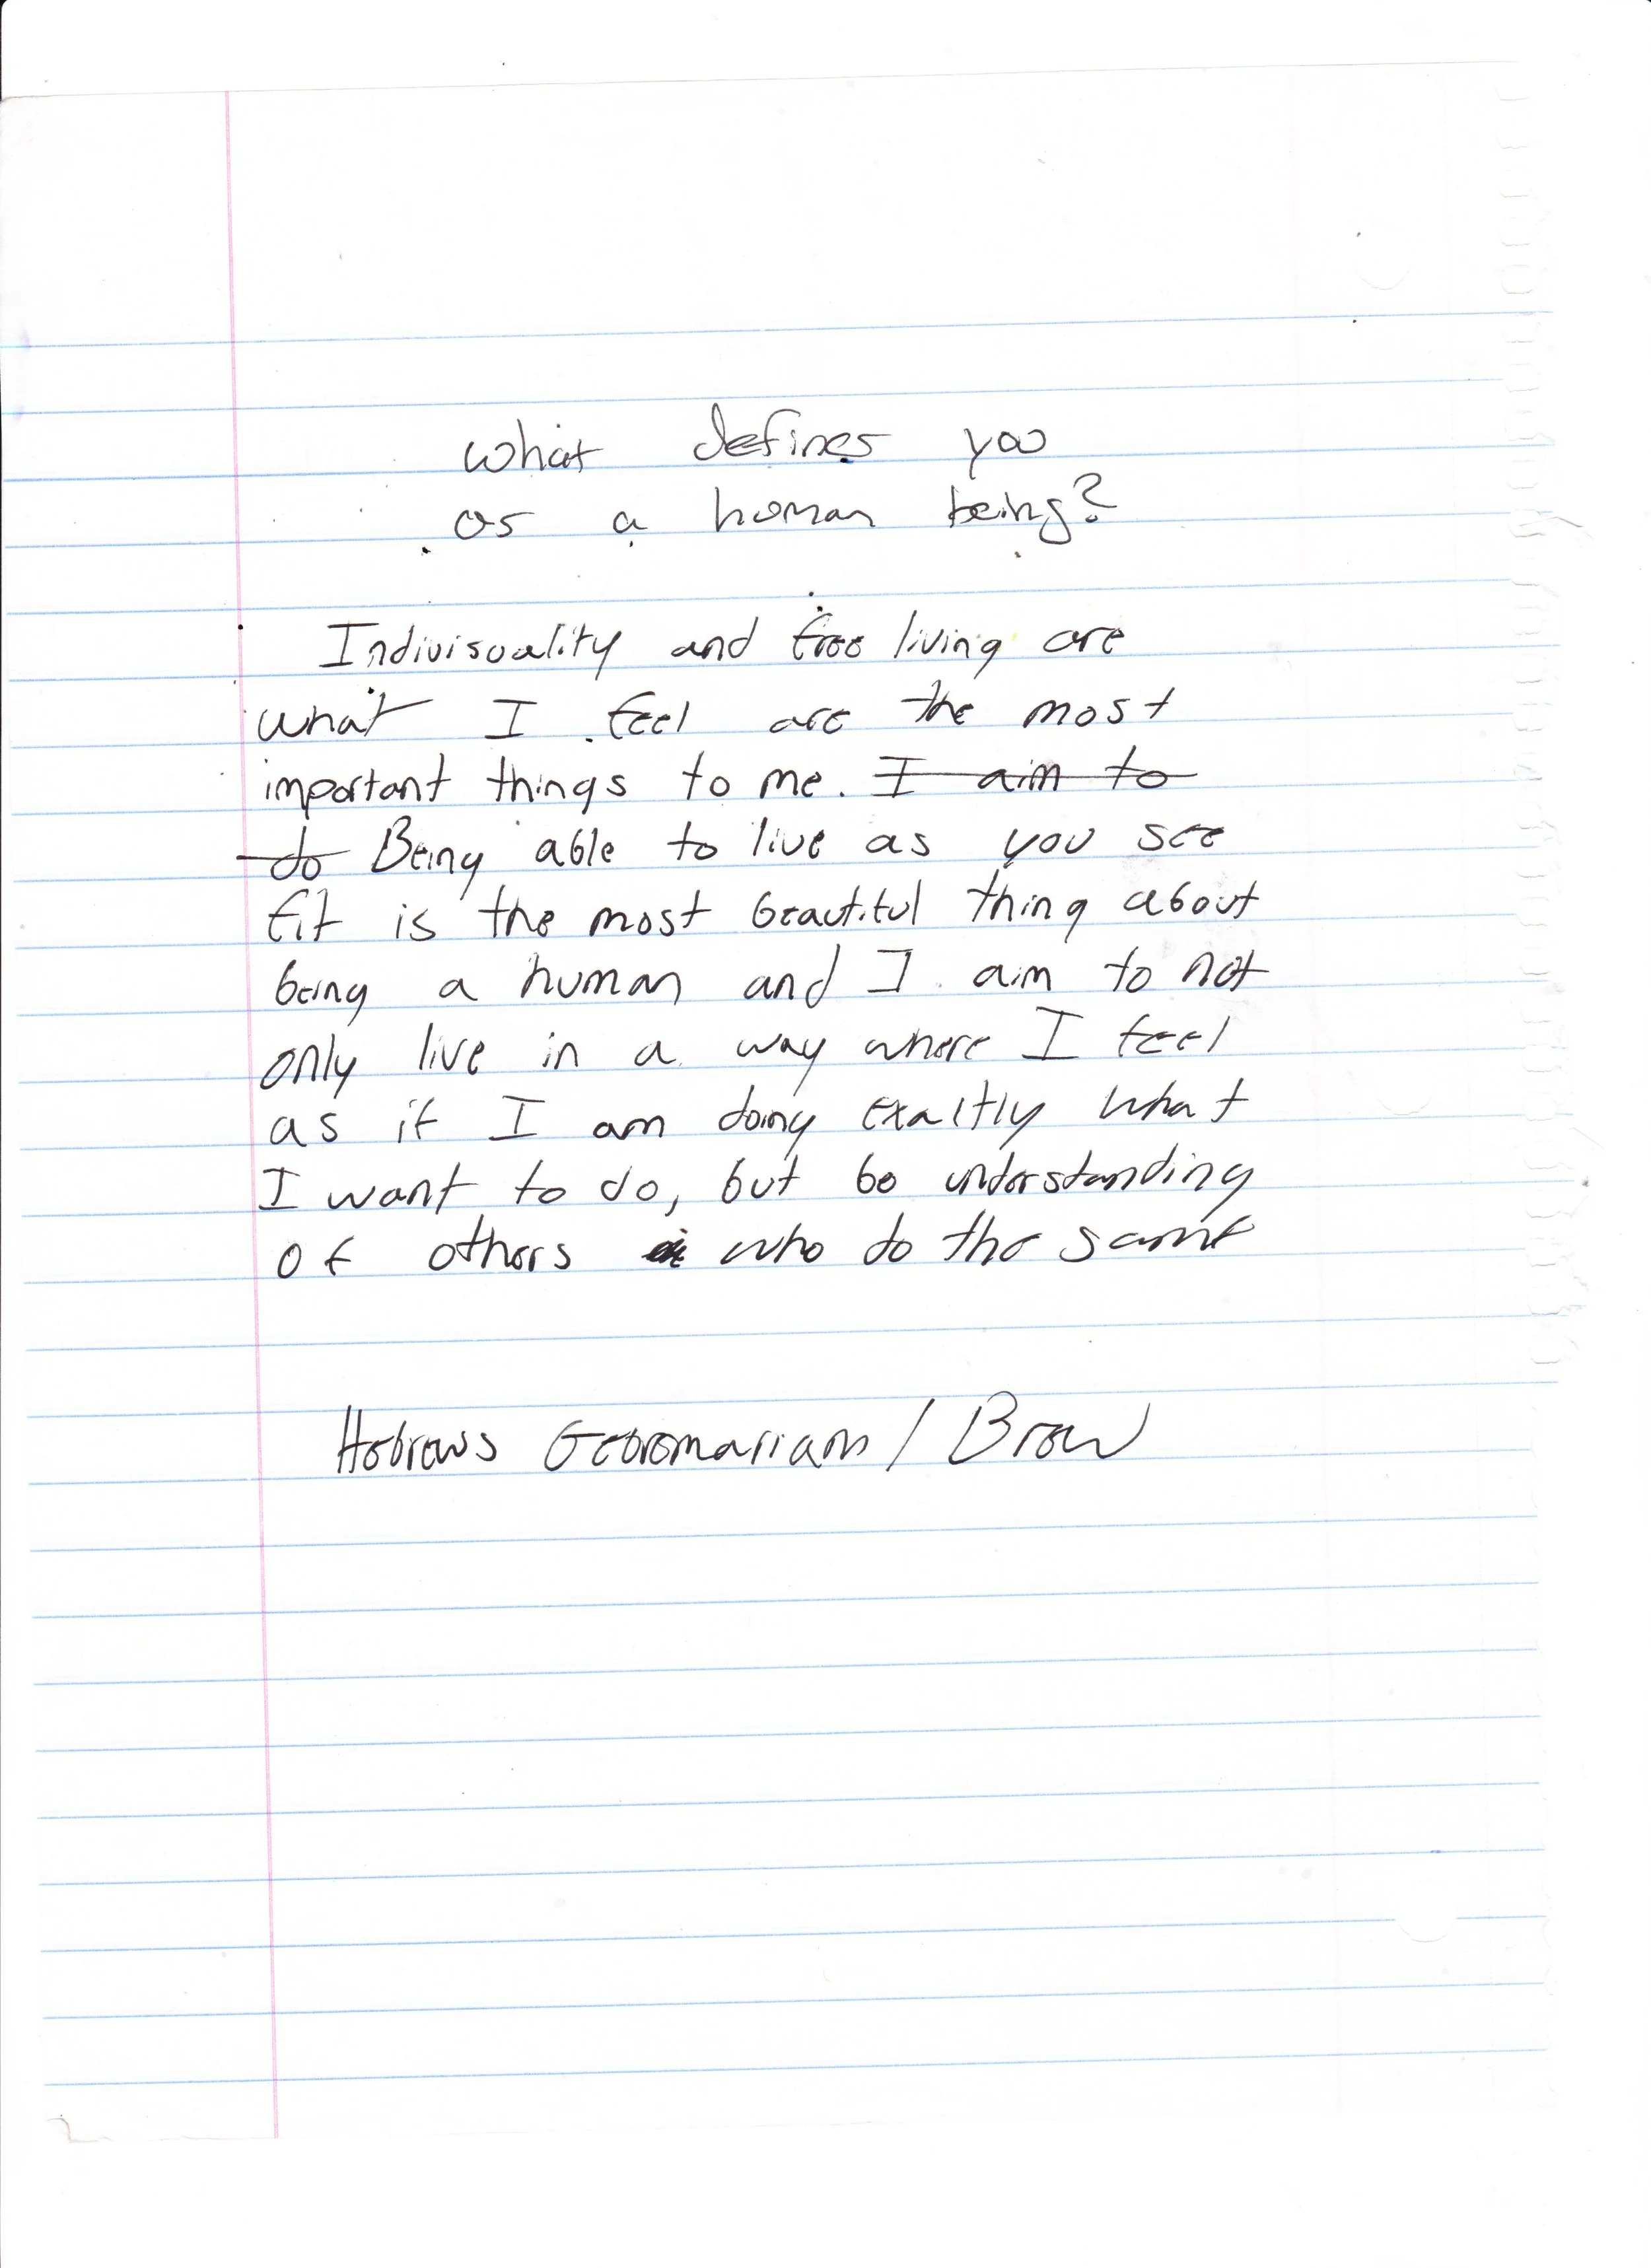 What defines you
as a human being?
Indivisuality and free living are
what I feel are the most
important things to me. I aim to
do Being able to live as you see
fit is the most beautiful thing about
being a human and I aim to not
only live in a way where I feel
as if I am doing exactly what
I want to do, but be understanding
of others who do the same
Hebrews Gebremariam / Brew